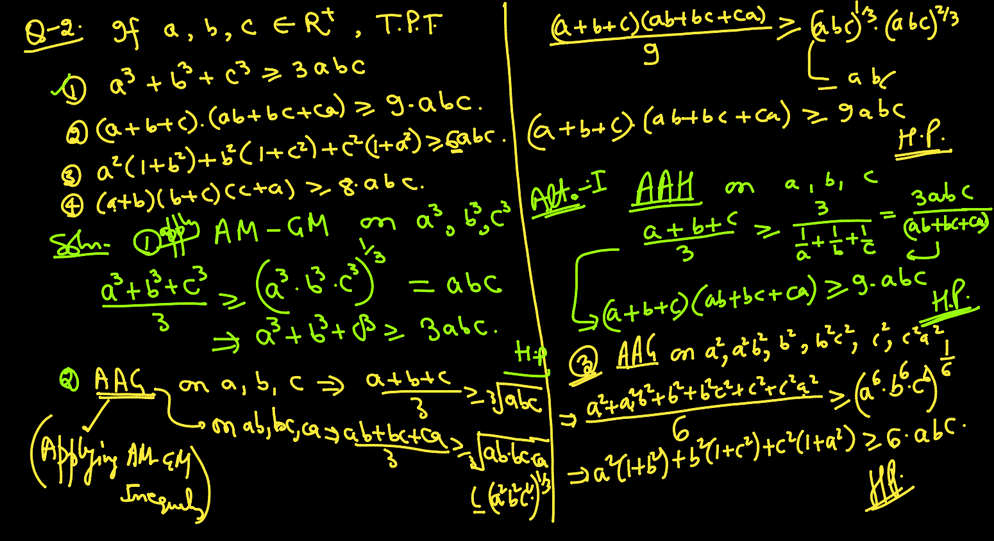 Q-2: If a, b, c ∈ R⁺, T.P.T
① a³ + b³ + c³ ≥ 3abc
② (a+b+c).(ab+bc+ca) ≥ 9.abc.
③ a²(1+b²)+b²(1+c²)+c²(1+a²) ≥ 6abc.
④ (a+b)(b+c)(c+a) ≥ 8.abc.
Soln- ① apply AM-GM on a³, b³, c³
(a³+b³+c³)/3 ≥ (a³.b³.c³)^1/3 = abc
⇒ a³+b³+c³ ≥ 3abc.
H.P
② AAG on a, b, c ⇒ (a+b+c)/3 ≥ ³√abc
on ab, bc, ca ⇒ (ab+bc+ca)/3 ≥ ³√ab.bc.ca
(a²b²c²)^1/3
(Applying AM-GM
Inequaly)
(a+b+c)(ab+bc+ca)/9 ≥ (abc)^1/3.(abc)^2/3
abc
(a+b+c).(ab+bc+ca) ≥ 9abc
H.P.
Alt.-I AAH on a, b, c
(a+b+c)/3 ≥ 3/(1/a+1/b+1/c) = 3abc/(ab+bc+ca)
⇒ (a+b+c)(ab+bc+ca) ≥ 9.abc
H.P.
③ AAG on a², a²b², b², b²c², c², c²a²
⇒ (a²+a²b²+b²+b²c²+c²+c²a²)/6 ≥ (a⁶.b⁶.c⁶)^1/6
⇒ a²(1+b²)+b²(1+c²)+c²(1+a²) ≥ 6.abc.
H.P.